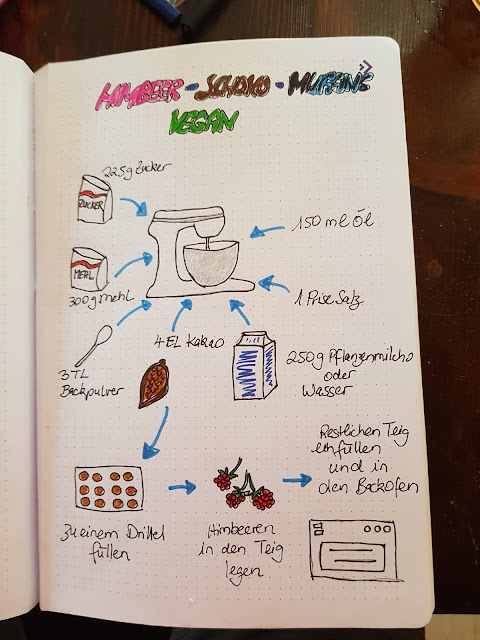 HIMBEER - SCHOKO - MUFFINS
VEGAN
225g Zucker
ZUCKER
150 ml Öl
MEHL
300g Mehl
1 Prise Salz
3 TL
Backpulver
4 EL Kakao
250g Pflanzenmilch
oder
Wasser
Zu einem Drittel
füllen
Himbeeren
in den Teig
legen
Restlichen Teig
einfüllen
und in
den Backofen